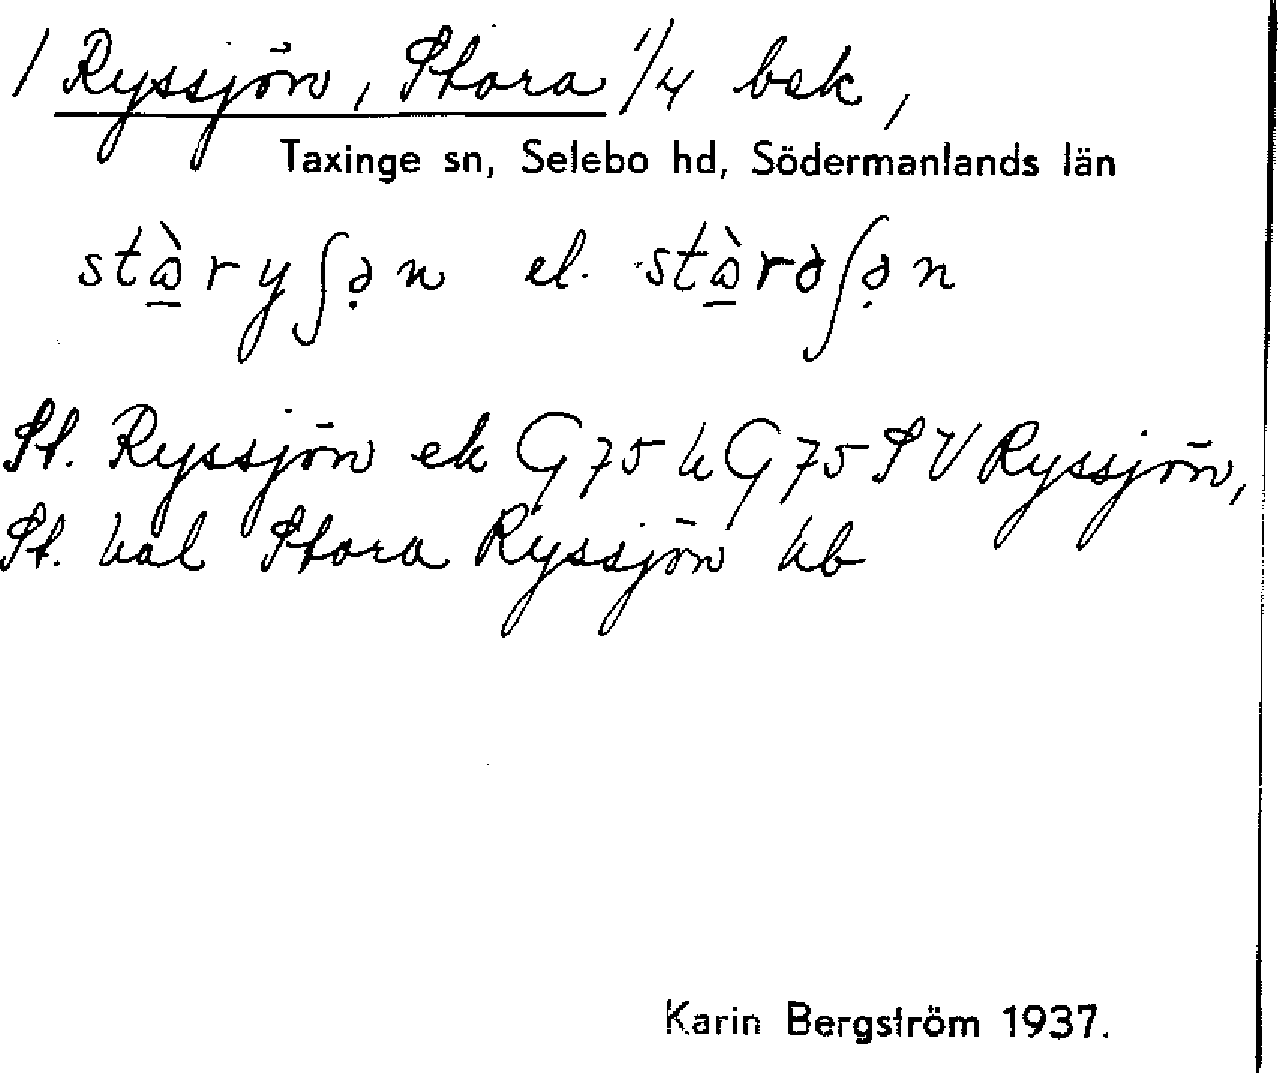 / Ryssjön, Stora 1/4 bsk,
Taxinge sn, Selebo hd, Södermanlands län
stὰ̱ryʃə̣n el. stὰ̱rəʃə̣n
St. Ryssjön ek G75 h G75 SV Ryssjön,
St. hal Stora Ryssjön hb
Karin Bergström 1937.